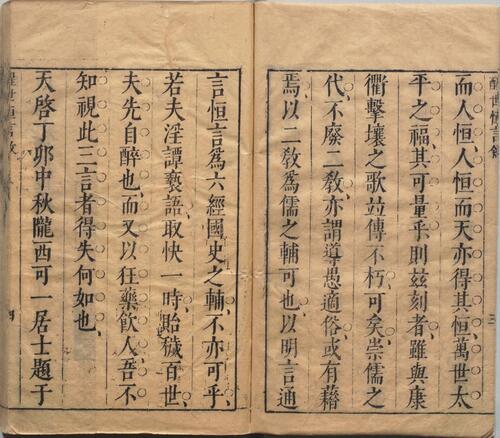 而人恒人恒而天亦得其恒萬世太
平之福其可量乎則兹刻者雖與康
衢擊壤之歌竝傳不朽可矣崇儒之
代不廢二敎亦謂導愚適俗或有藉
焉以二敎爲儒之輔可也以明言通
言恒言爲六經國史之輔不亦可乎
若夫淫譚褻語取快一時貽穢百世
夫先自醉也而又以狂藥飲人吾不
知視此三言者得失何如也
天啓丁夘中秋隴西可一居士題于
四